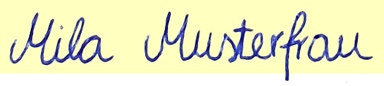 Mila Musterfrau